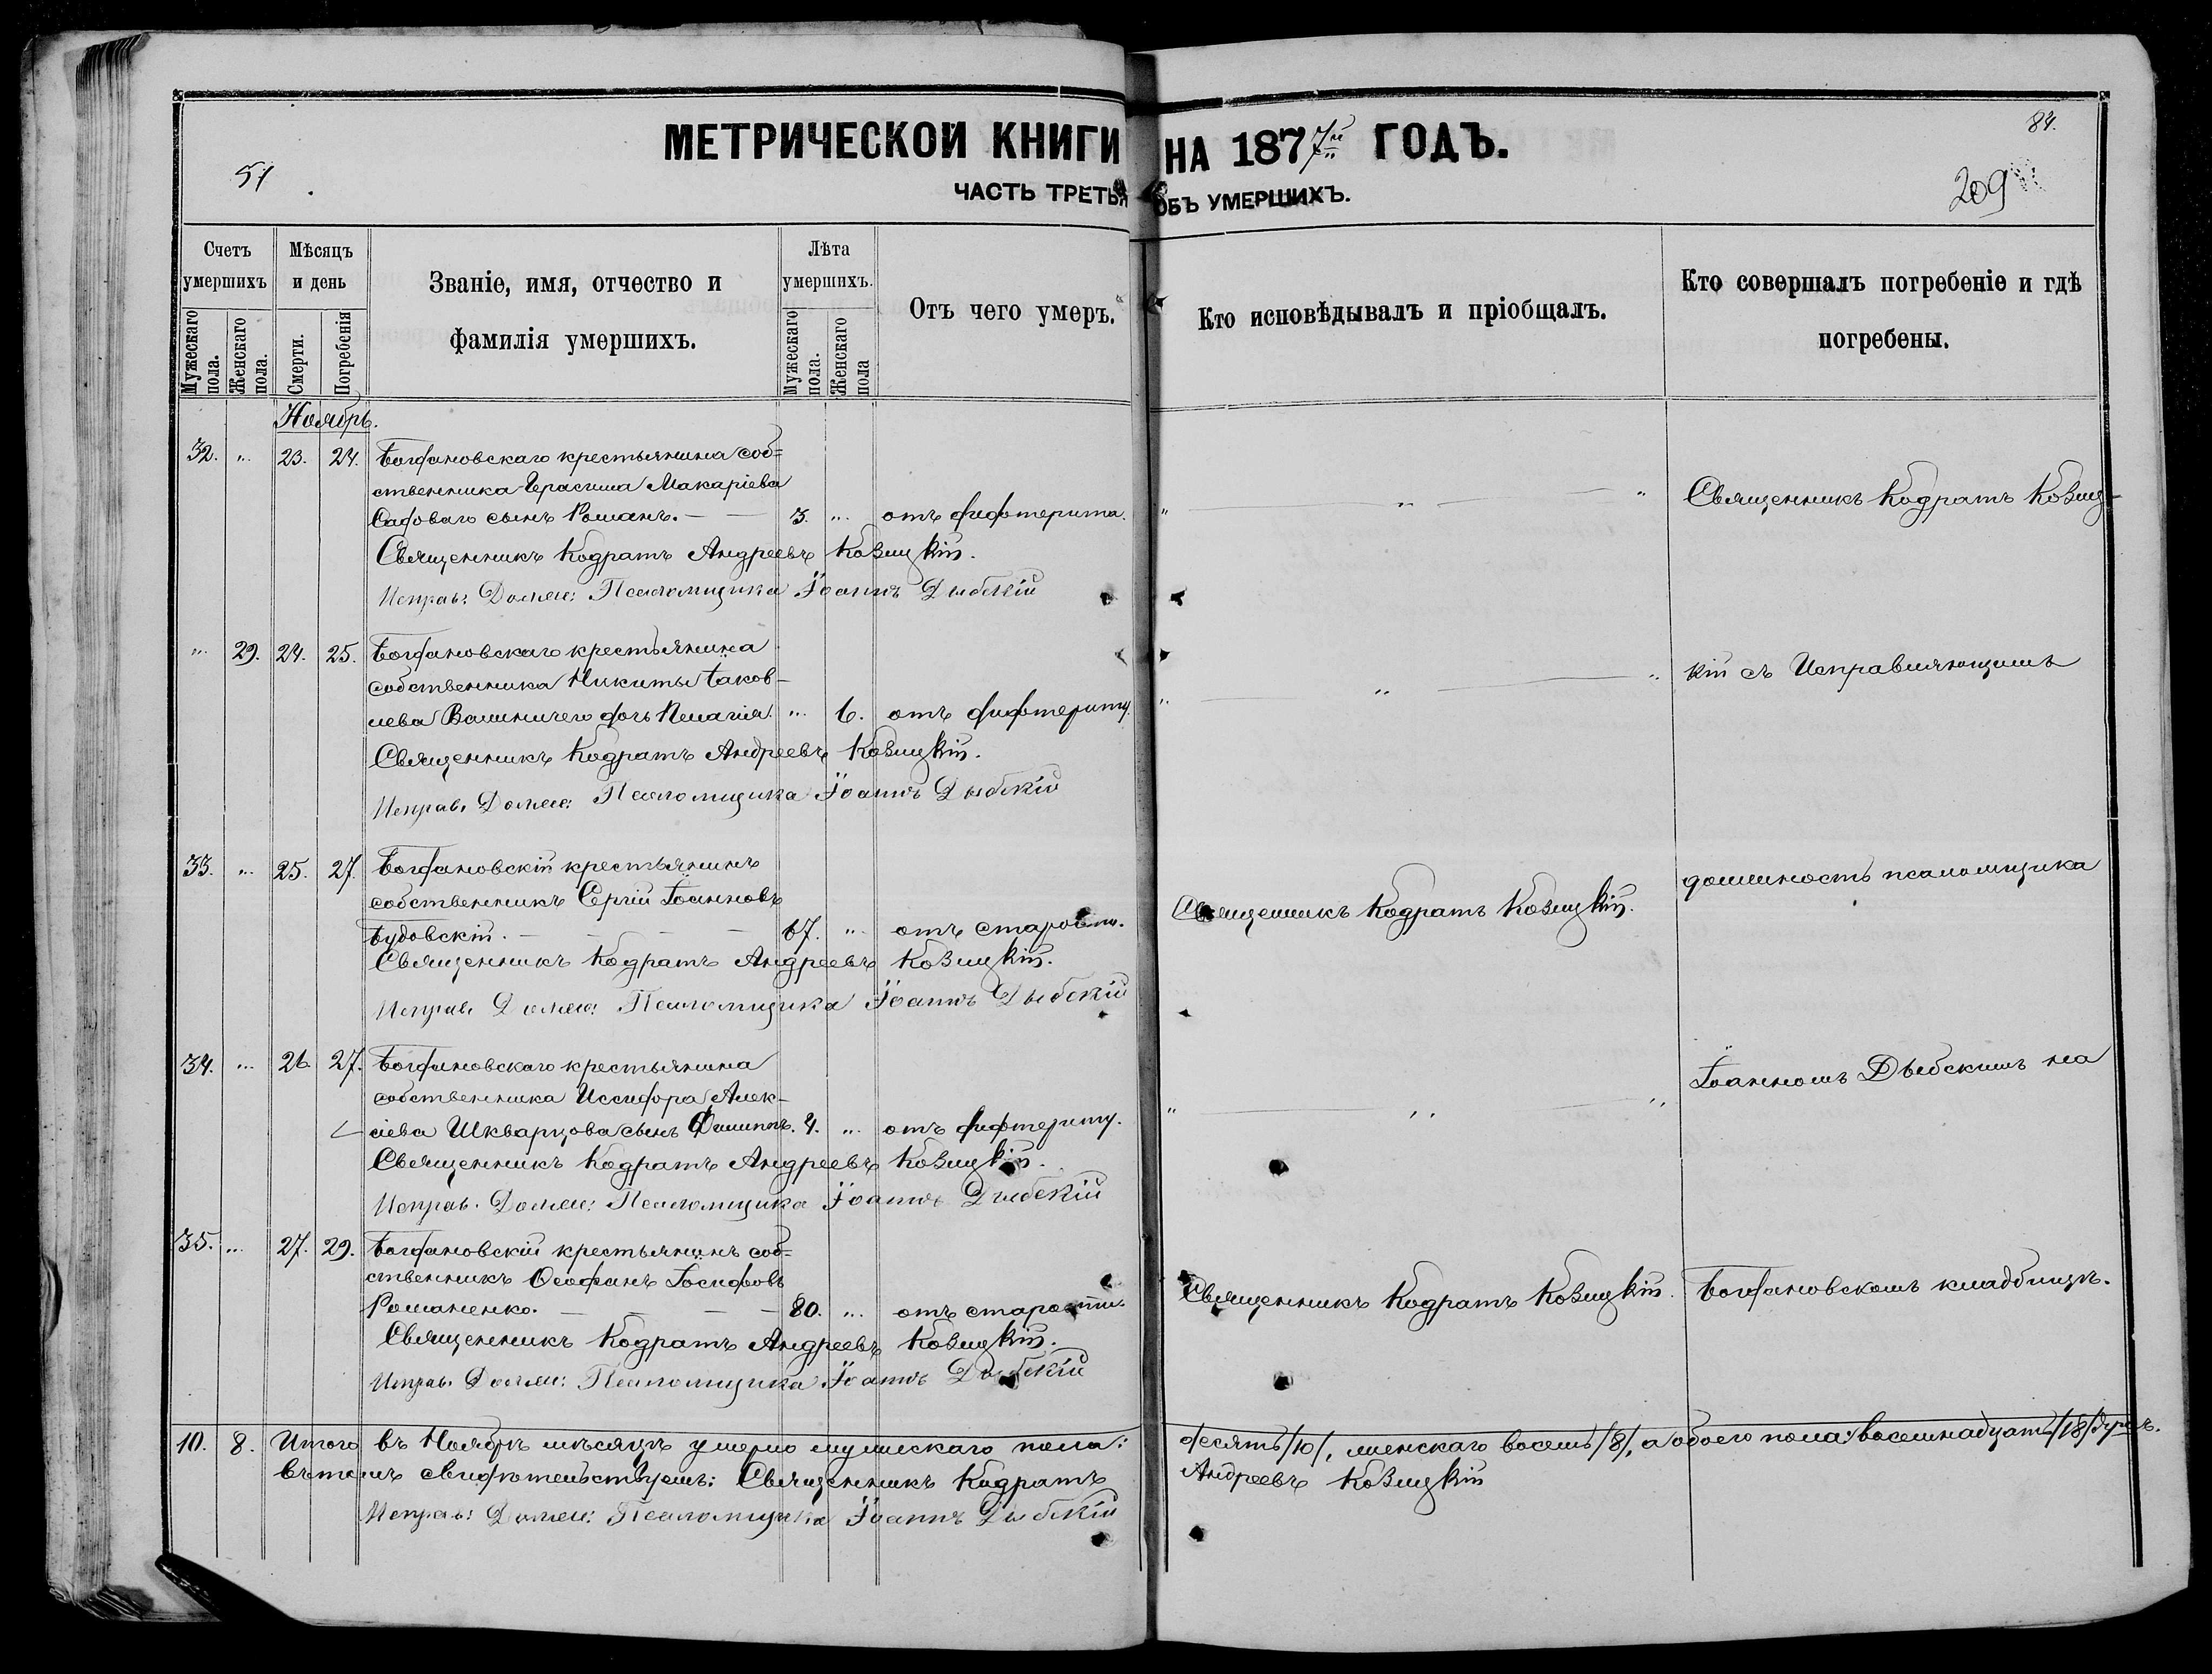 МЕТРИЧЕСКОЙ КНИГИ НА 1877й ГОДЪ.
84.
51
ЧАСТЬ ТРЕТЬЯ ОБЪ УМЕРШИХЪ.
209
Счетъ умершихъ
Мужескаго пола.
Женскаго пола.
Мѣсяцъ и день
Смерти.
Погребенія
Званіе, имя, отчество и фамилія умершихъ.
Лѣта умершихъ.
Мужескаго пола.
Женскаго пола
Отъ чего умеръ.
Кто исповѣдывалъ и пріобщалъ.
Кто совершалъ погребеніе и гдѣ погребены.
Ноябрь.
32. „ 23. 24. Богдановскаго крестьянина соб=
ственника Герасима Макаріева
Садоваго сынъ Романъ. — — 3. „ отъ дифтерита. „ — „ — „ Священникъ Кодратъ Козиц-
Священникъ Кодратъ Андреевъ Козицкій.
Исправ: Должн: Псаломщика Іоаннъ Дыбскій
„ 29. 24. 25. Богдановскаго крестьянина
собственника Никиты Іаков-
лева дочь Пелагія. „ 6. отъ дифтериту. „ — „ — „ кій съ Исправляющимъ
Священникъ Кодратъ Андреевъ Козицкій.
Исправ. Должн: Псаломщика Іоаннъ Дыбскій
33. „ 25. 27. Богдановскій крестьянинъ
собственникъ Сергій Іоанновъ
Будовскій. — — — — 67. „ отъ старости. Священникъ Кодратъ Козицкій. должность псаломщика
Священникъ Кодратъ Андреевъ Козицкій.
Исправ. Должн: Псаломщика Іоаннъ Дыбскій
34. „ 26. 27. Богдановскаго крестьянина
собственника Иссидора Алек-
сіева Шкварцова сынъ Филиппъ. 4. „ отъ дифтериту. „ — „ — „ Іоанномъ Дыбскимъ на
Священникъ Кодратъ Андреевъ Козицкій.
Исправ. Должн: Псаломщика Іоаннъ Дыбскій
35. „ 27. 29. Богдановскій крестьянинъ соб=
ственникъ Ѳеофанъ Іосифовъ
Романенко. — — — — 80. „ отъ старости. Священникъ Кодратъ Козицкій. Богдановскомъ кладбищѣ.
Священникъ Кодратъ Андреевъ Козицкій.
Исправ. Должн: Псаломщика Іоаннъ Дыбскій
10. 8. Итого въ Ноябрѣ мѣсяцѣ умерло мужескаго пола: десять /10/, женскаго восемь /8/, а обоего пола: восемнадцать /18/ душъ.
Въ томъ свидѣтельствуемъ: Священникъ Кодратъ Андреевъ Козицкій
Исправ: Должн: Псаломщика Іоаннъ Дыбскій